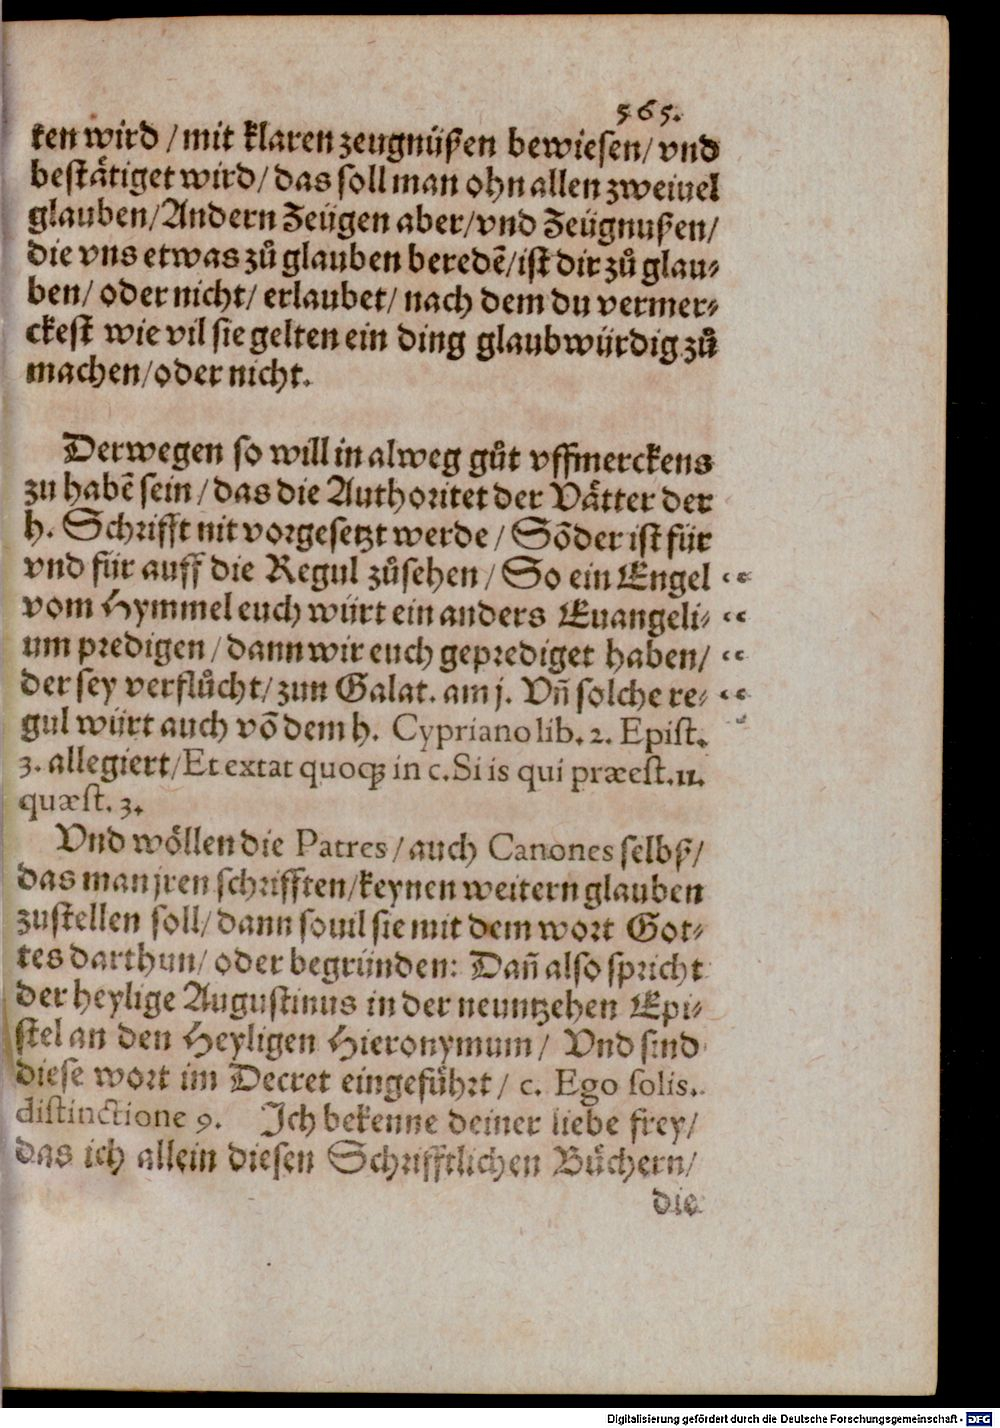 565.
ken wird / mit klaren zeugnüßen bewiesen / vnd
bestätiget wird / das soll man ohn allen zweiuel
glauben / Andern Zeügen aber / vnd Zeügnußen /
die vns etwas zů glauben beredē / ist dir zů glau⸗
ben / oder nicht / erlaubet / nach dem du vermer⸗
ckest wie vil sie gelten ein ding glaubwürdig zů
machen / oder nicht.
Derwegen so will in alweg gůt vffmerckens
zu habē sein / das die Authoritet der Vätter der
h. Schrifft nit vorgesetzt werde / Sōder ist für
vnd für auff die Regul zůsehen / So ein Engel
vom Hymmel euch würt ein anders Euangeli⸗
um predigen / dann wir euch geprediget haben /
der sey verflůcht / zun Galat. am j. Vn̄ solche re⸗
gul würt auch vō dem h. Cypriano lib. 2. Epist.
3. allegiert / Et extat quoqꝫ in c. Si is qui præest. 11.
quæst. 3.
Vnd wöllen die Patres / auch Canones selbß /
das man jren schrifften / keynen weitern glauben
zustellen soll / dann souil sie mit dem wort Got⸗
tes darthun / oder begründen: Dan̄ also spricht
der heylige Augustinus in der neuntzehen Epi⸗
stel an den Heyligen Hieronymum / Vnd sind
diese wort im Decret eingeführt / c. Ego solis.
distinctione 9. Ich bekenne deiner liebe frey /
das ich allein diesen Schrifftlichen Büchern /
die
Digitalisierung gefördert durch die Deutsche Forschungsgemeinschaft - DFG